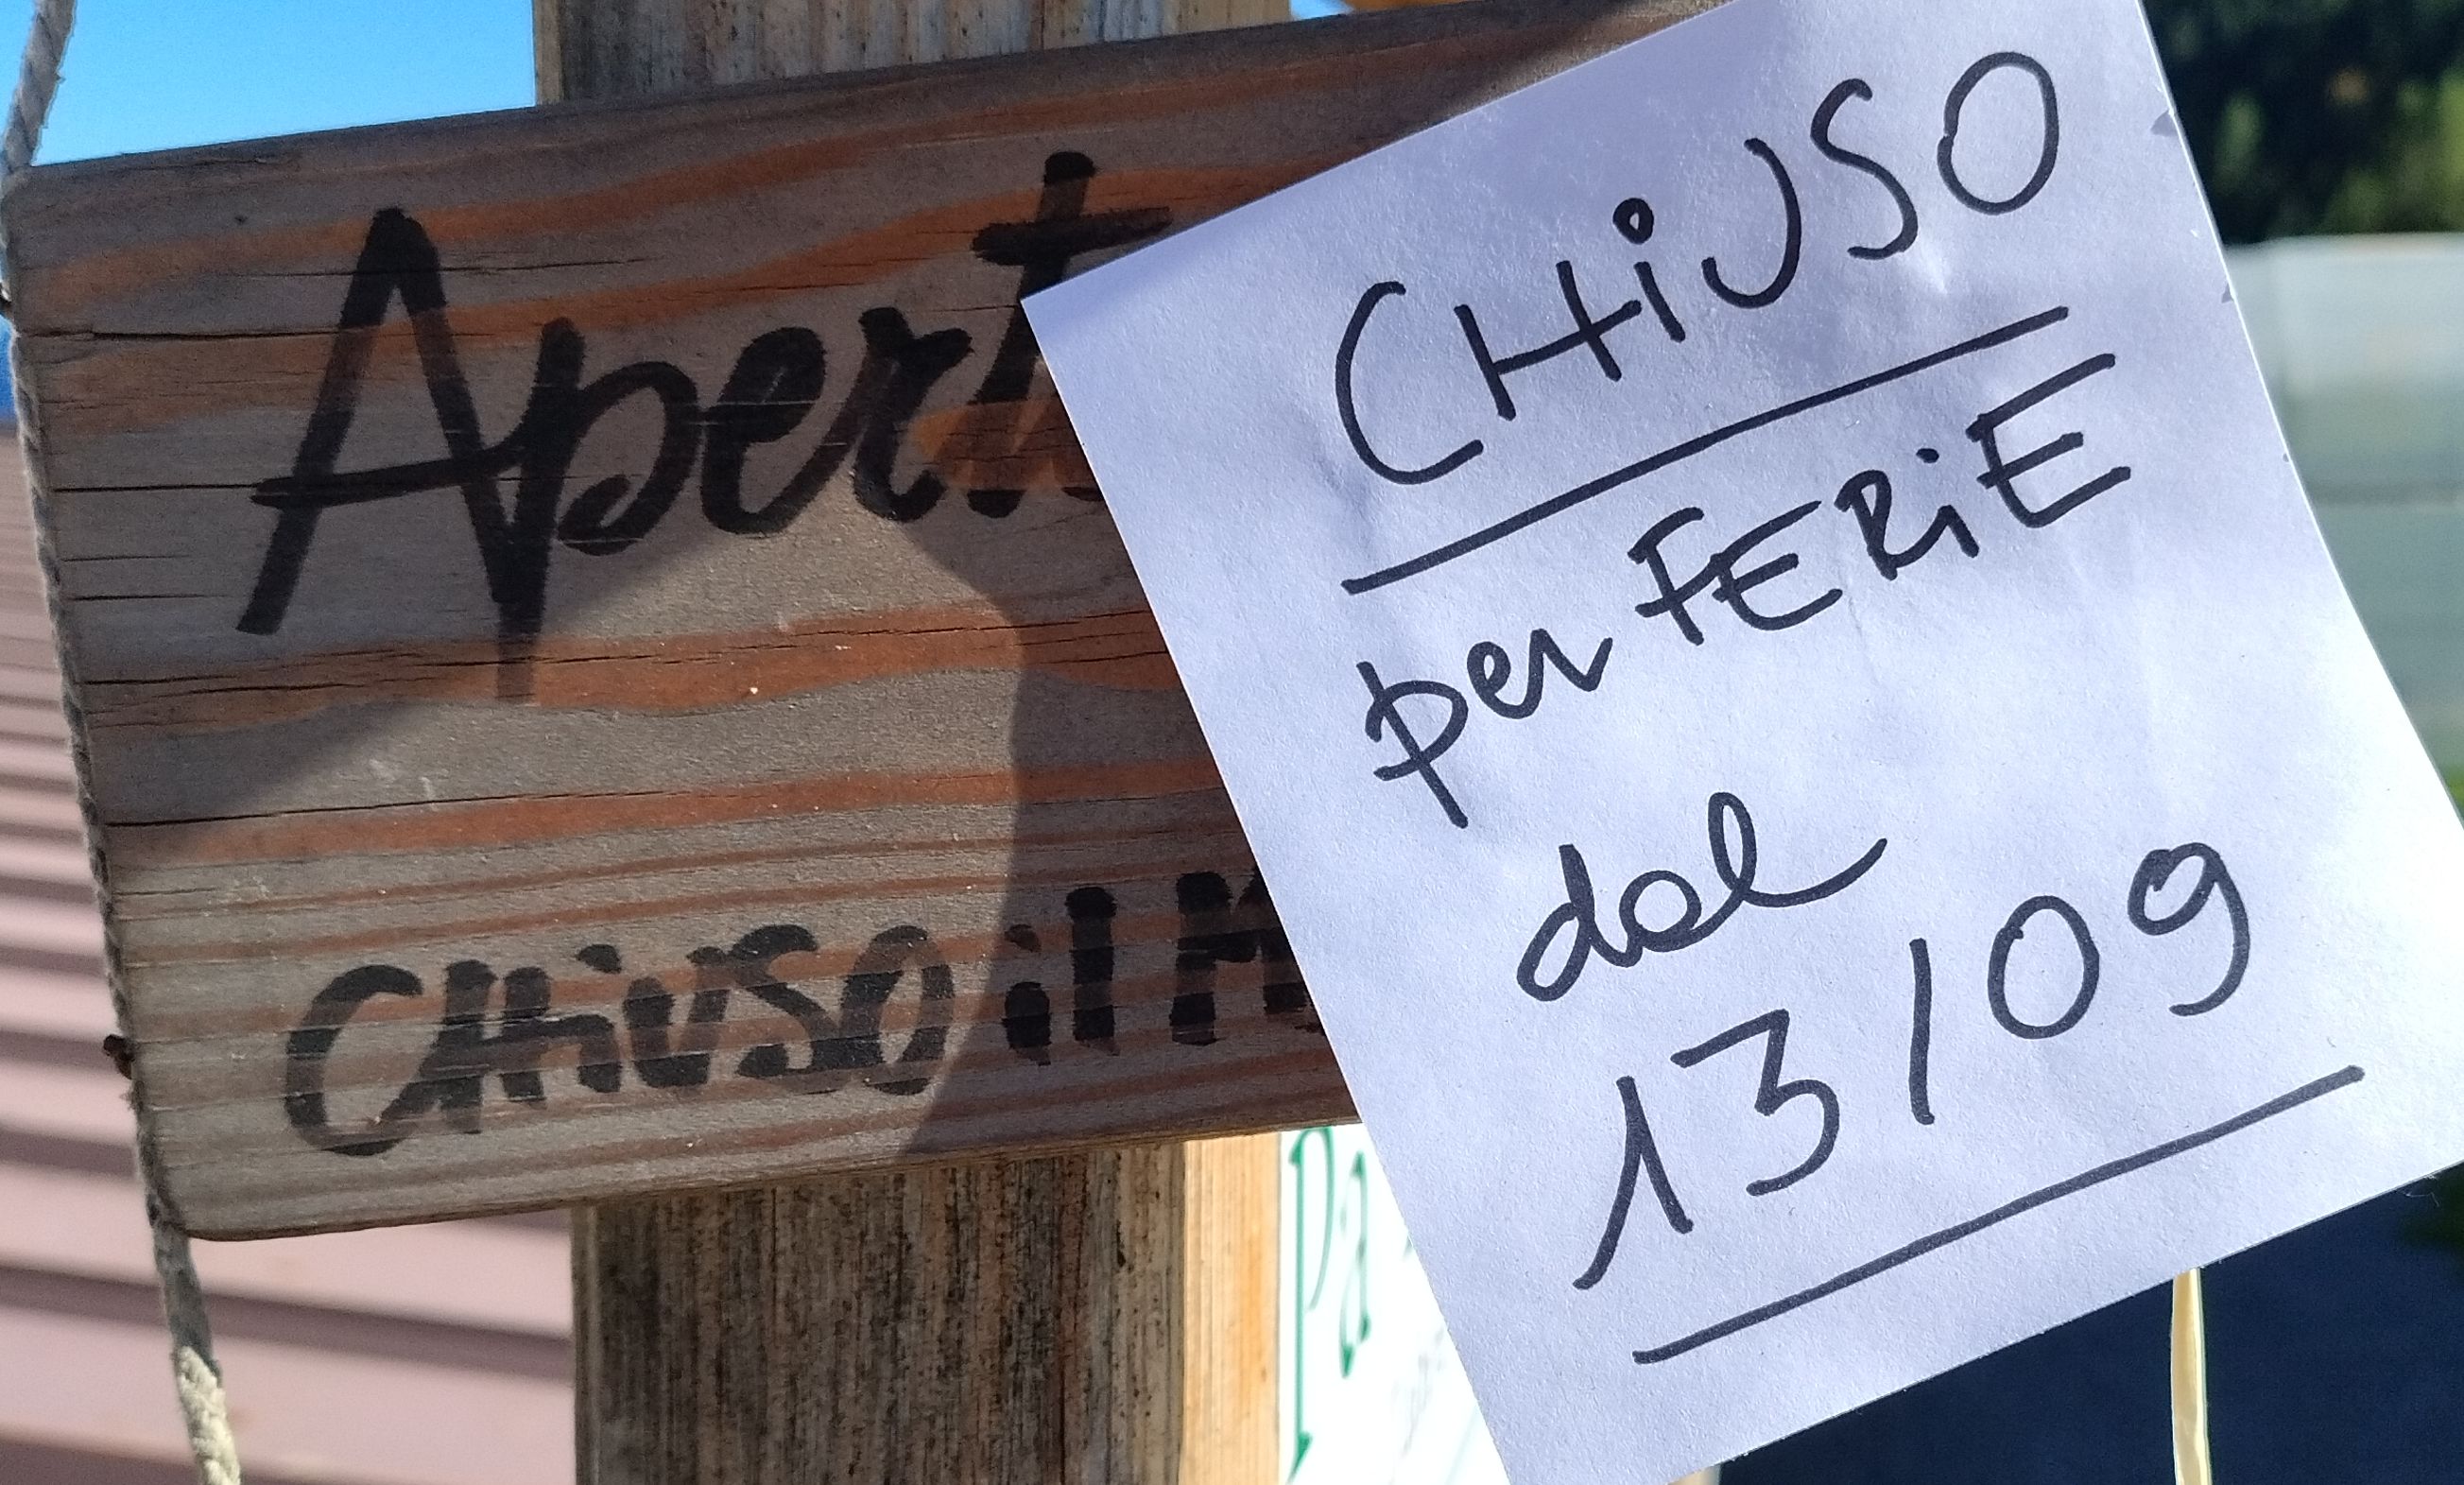 Apert
CHiUSO il M
CHiUSO
per FERiE
dal
13/09
Pa